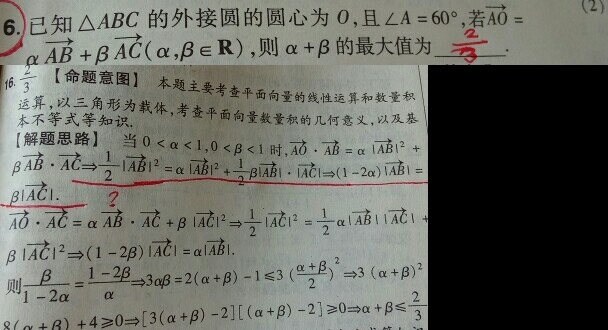 (2)
6. 已知△ABC 的外接圆的圆心为 O,且∠A = 60°,若AO =
α AB + β AC(α,β∈R),则 α + β 的最大值为 2/3 .
16. 2/3 【命题意图】 本题主要考查平面向量的线性运算和数量积
运算,以三角形为载体,考查平面向量数量积的几何意义,以及基
本不等式等知识.
【解题思路】 当 0 < α < 1,0 < β < 1 时,AO · AB = α |AB|² +
βAB · AC⇒1/2 |AB|² = α |AB|² + 1/2 β|AB| · |AC|⇒(1 - 2α)|AB| =
β|AC|. ?
AO · AC = α AB · AC + β |AC|²⇒1/2 |AC|² = 1/2 α|AB| |AC| +
β |AC|²⇒(1 - 2β)|AC| = α|AB|.
则 β/(1 - 2α) = (1 - 2β)/α ⇒3αβ = 2(α + β) - 1≤3 ((α + β)/2)² ⇒3 (α + β)²
8(α + β) + 4≥0⇒[3(α + β) - 2][(α + β) - 2]≥0⇒α + β≤2/3